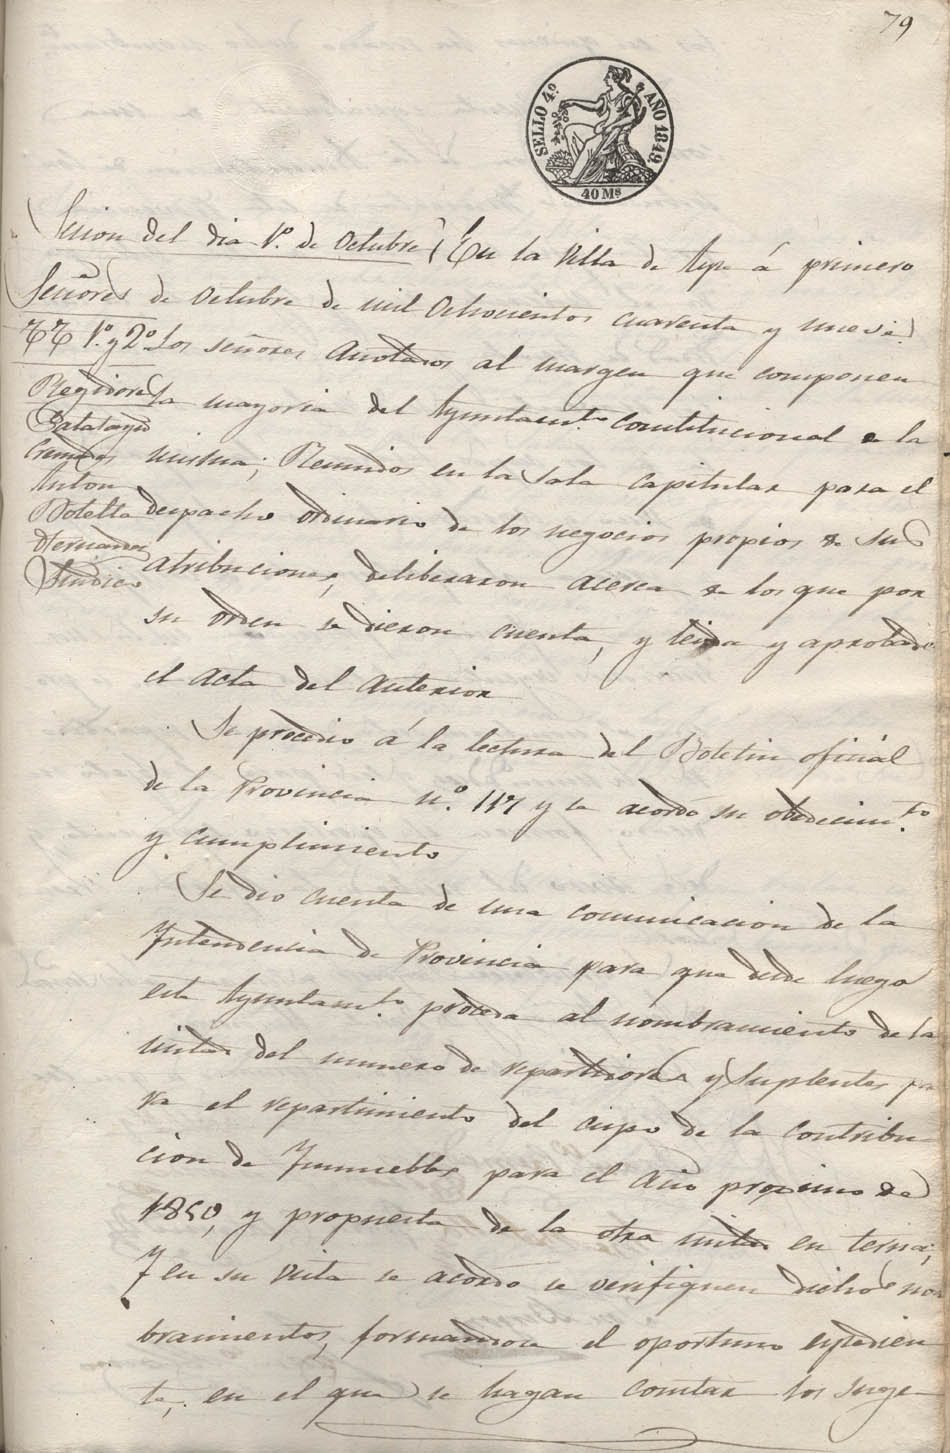 79
SELLO 4.º AÑO 1849.
40 Ms
Sesion del dia 1º. de Octubre
Señores
TT 1º. y 2º.
Regidores
Calatayud
Cremades
Anton
Botella
Hernandez
Sindico
En la villa de Aspe á primero
de Octubre de mil Ochocientos cuarenta y nueve.
Los señores Anotados al margen que componen
la mayoria del Ayuntamto. constitucional de la
misma; Reunidos en la Sala capitular para el
despacho ordinario de los negocios propios de sus
atribuciones, deliberaron acerca de los que por
su orden se dieron cuenta, y leida y aprobada
el acta del anterior
Se procedio á la lectura del Boletin oficial
de la Provincia nº. 117 y se acordó su obedecimto.
y cumplimiento
Se dio cuenta de una comunicacion de la
Intendencia de Provincia para que desde luego
este Ayuntamto. proceda al nombramiento de la
mitad del numero de repartidores y Suplentes pa
ra el repartimiento del cupo de la contribu
cion de Inmuebles para el Año proximo de
1850, y propuesta de la otra mitad en terna;
Y en su vista se acordó se verifiquen dichos nom
bramientos, formandose el oportuno espedien
te, en el que se hagan constar los suge